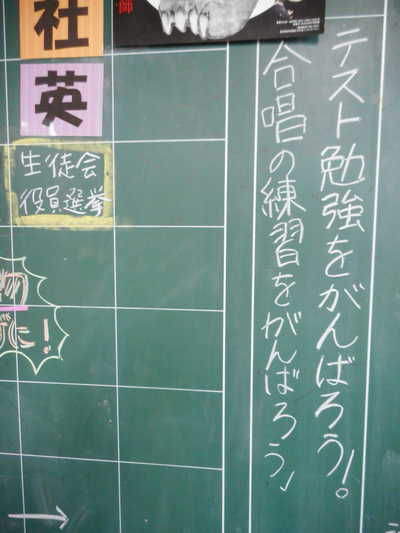 テスト勉強をがんばろう!。
合唱の練習をがんばろう、
社
英
生徒会
役員選挙
物
に!
師